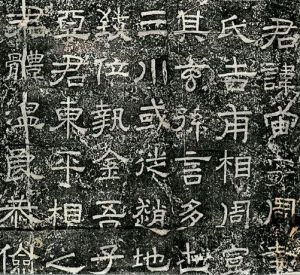 君諱宙字周南
氏吉甫相周宣
其玄孫言多世
三川或徙趙地
致位執金吾子
亞君東平相之
君體温良恭儉